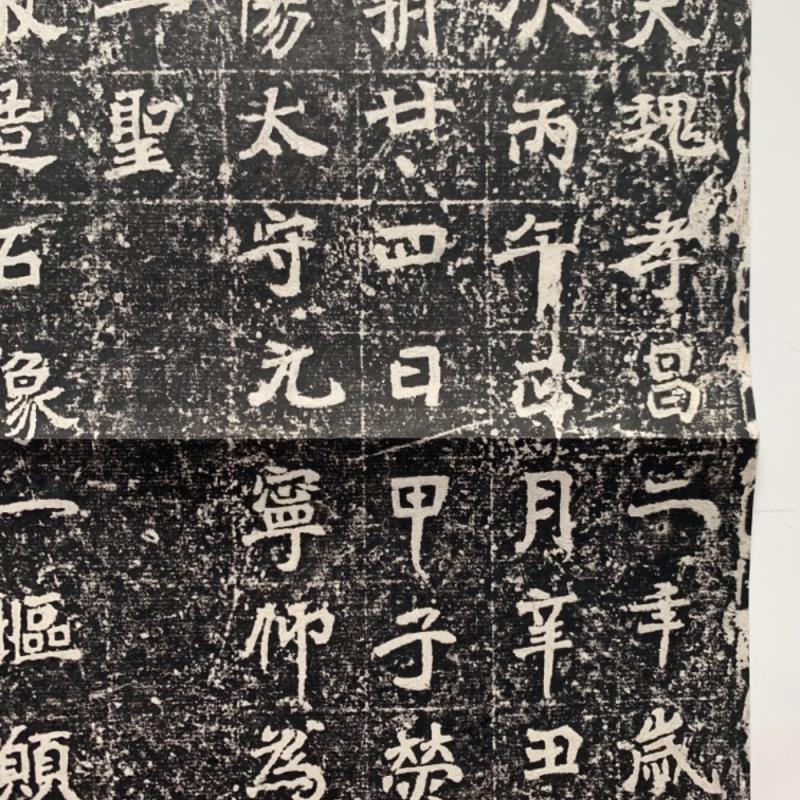 大魏孝昌二年歲
次丙午正月辛丑
朔廿四日甲子滎
陽太守元寧仰為
二聖
敬造石像一塸願